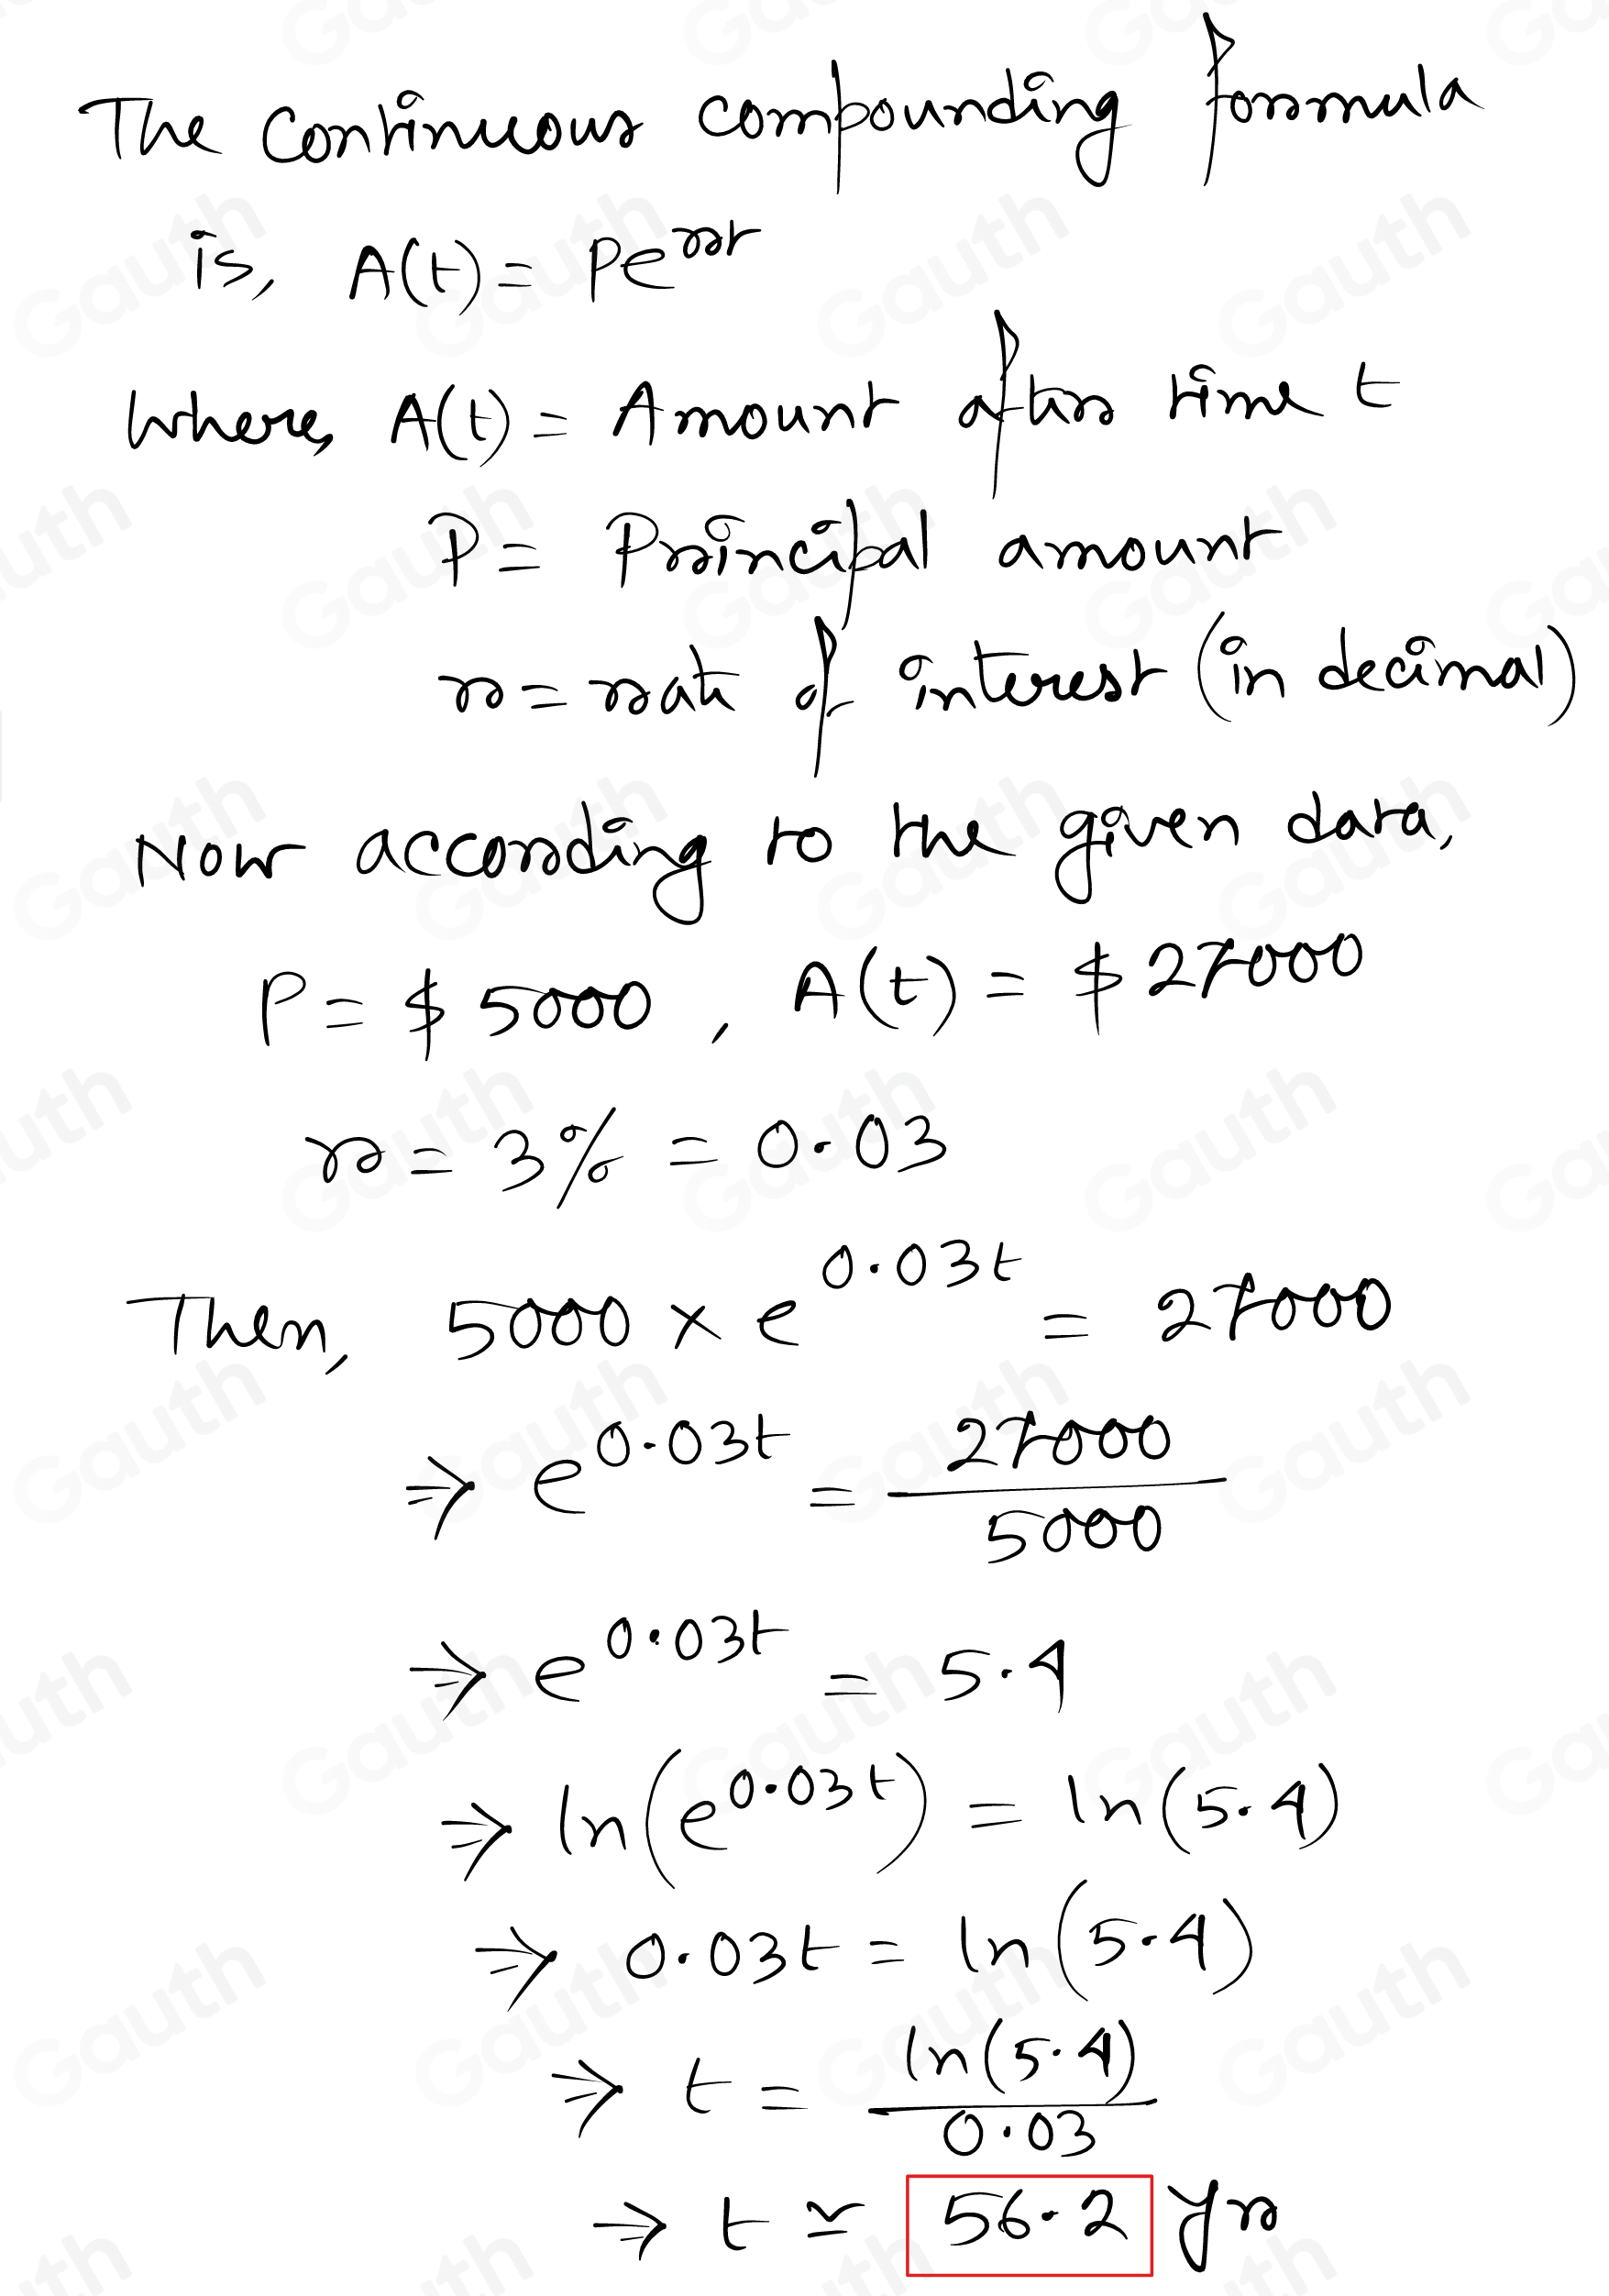 The continuous compounding formula
is, A(t) = Pe^rt
Where, A(t) = Amount after time t
P = Principal amount
r = rate of interest (in decimal)
Now according to the given data,
P = $ 5000 , A(t) = $ 27000
r = 3% = 0.03
Then, 5000 × e^0.03t = 27000
⇒ e^0.03t = 27000/5000
⇒ e^0.03t = 5.4
⇒ ln(e^0.03t) = ln(5.4)
⇒ 0.03t = ln(5.4)
⇒ t = ln(5.4)/0.03
⇒ t ≃ 56.2 yr
Gauth